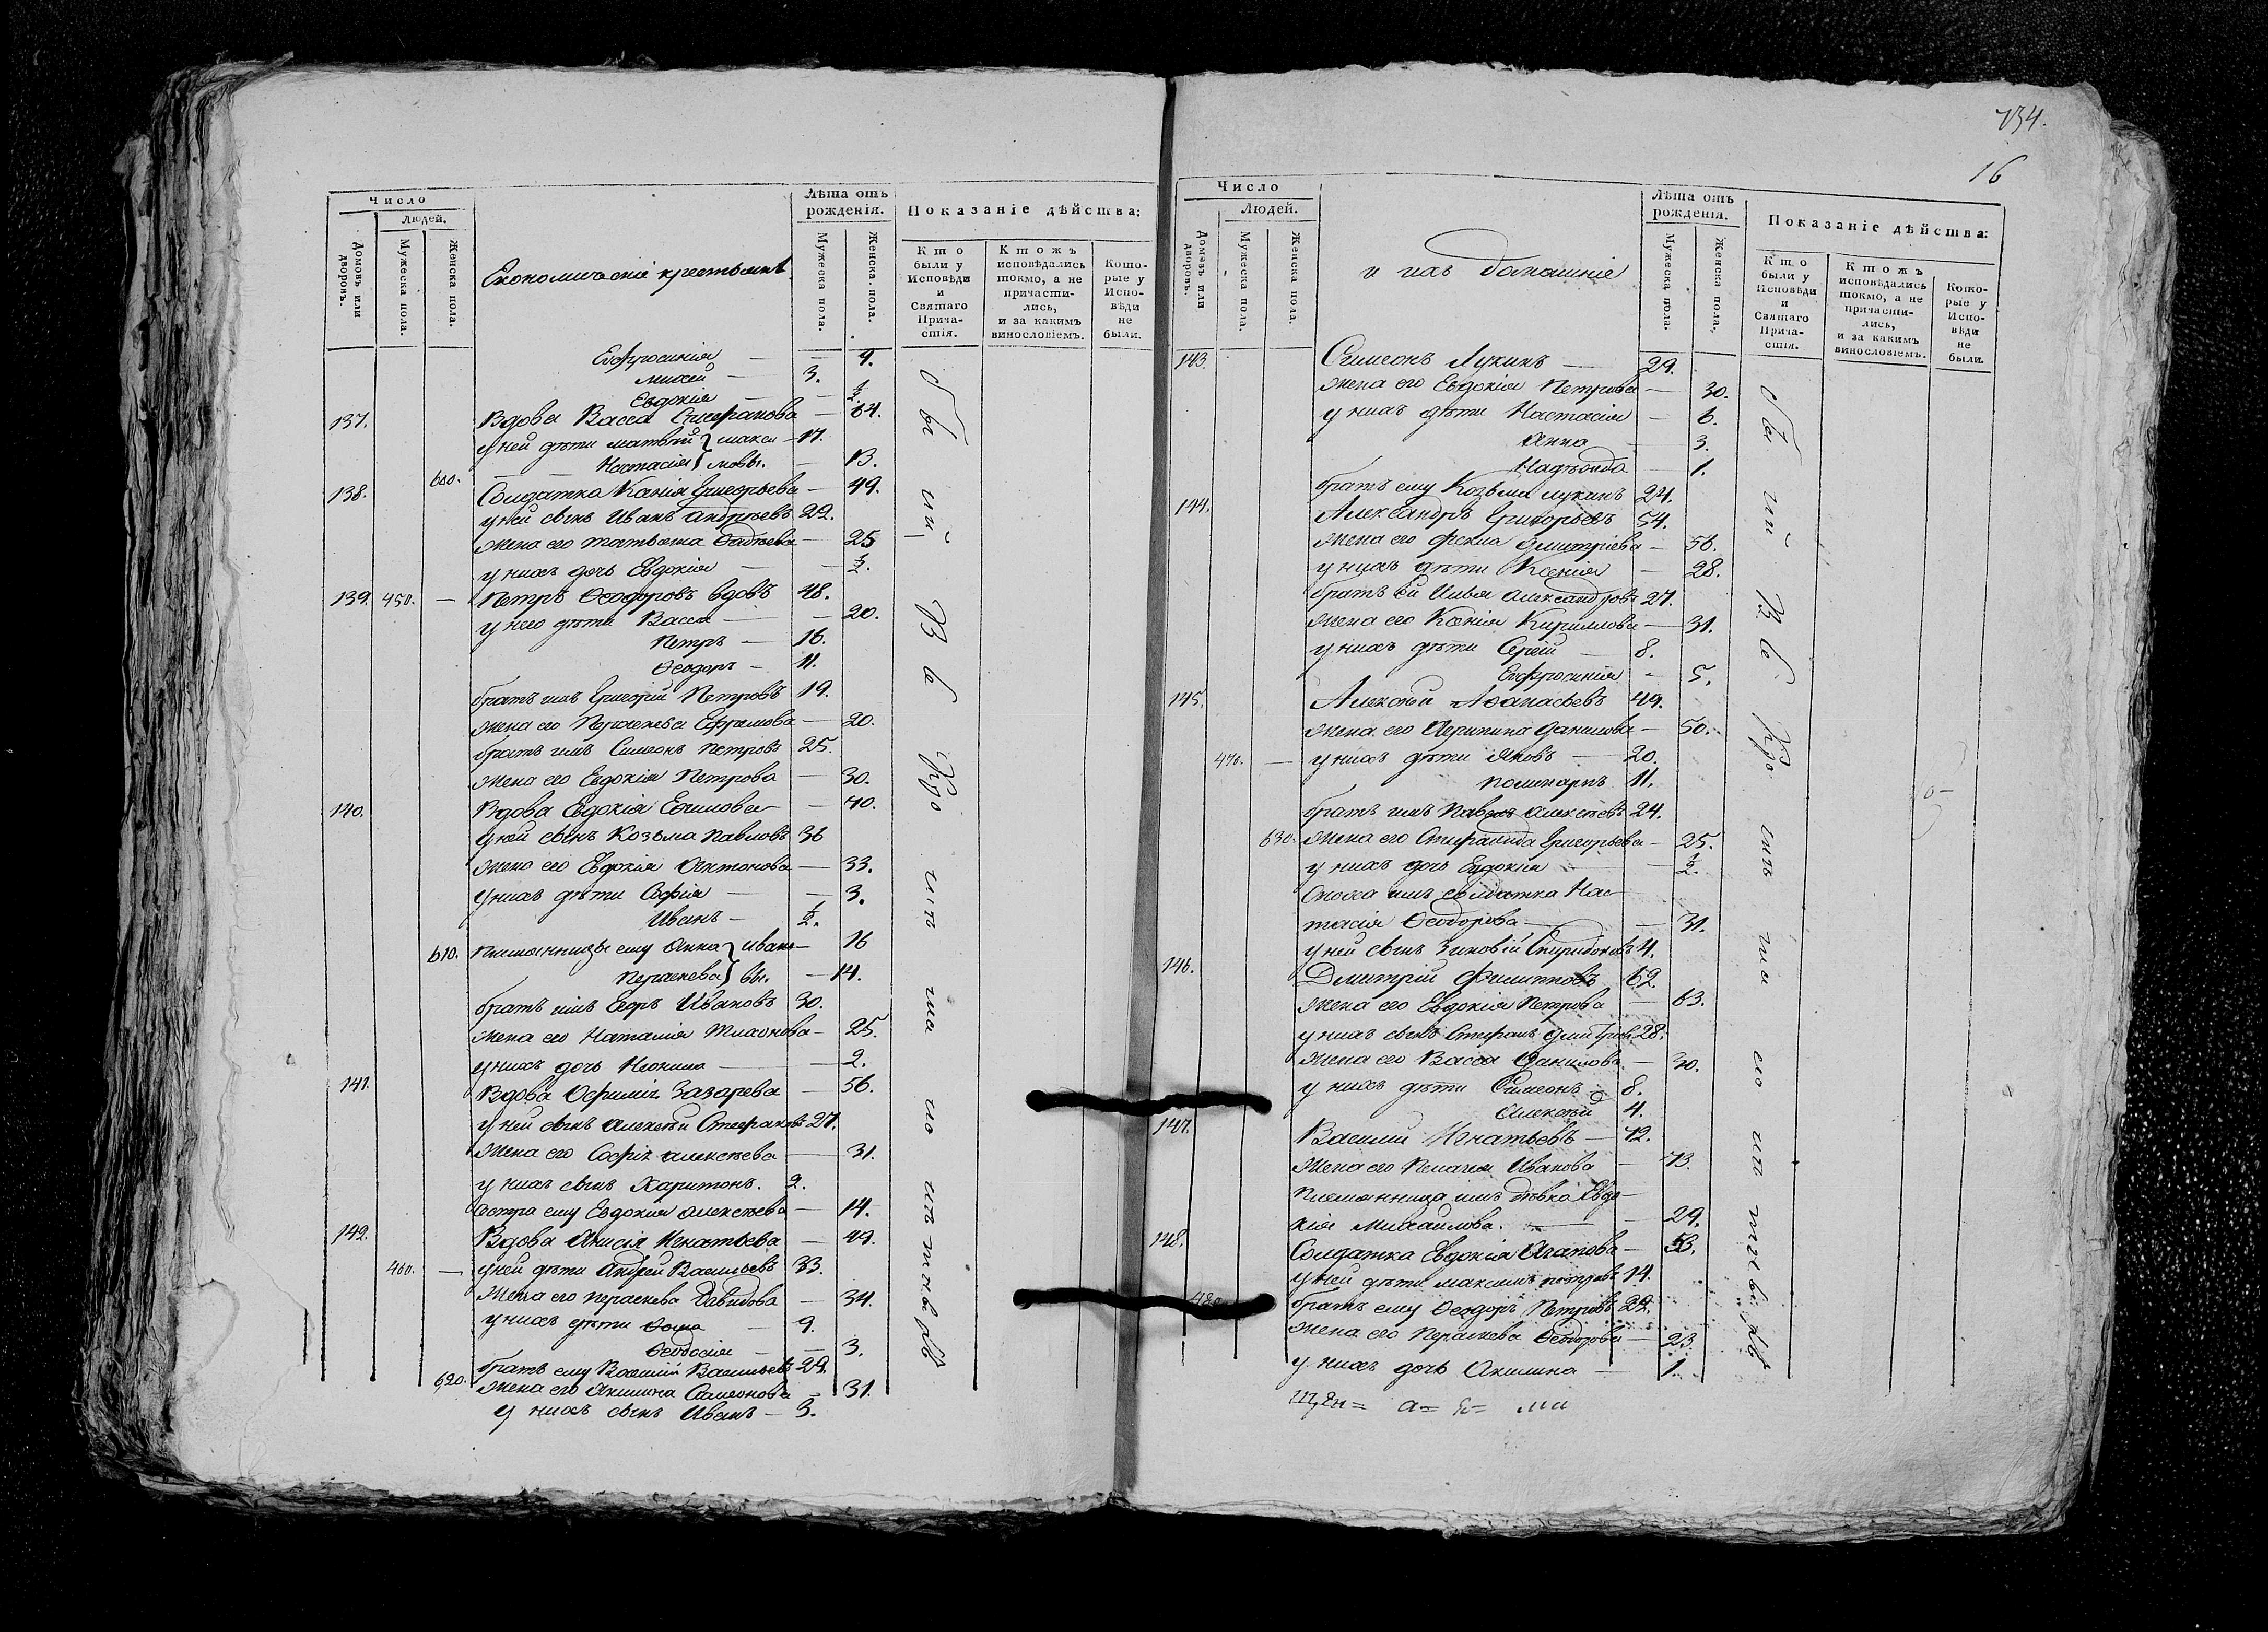 Число
Людей.
Домовъ или дворовъ.
Мужеска пола.
Женска пола.
Економическіе крестьяне
Лѣта отъ рожденія.
Мужеска пола.
Женска пола.
Показаніе дѣйства:
Кто были у Исповѣди и Святаго Причастія.
Ктожъ исповѣдались токмо, а не причастились, и за какимъ винословіемъ.
Которые у Исповѣди не были.
Евфросинія — — 9.
Михей — 3.
Евдокія — — ½.
137. Вдова Васса Стефанова — 64.
у ней дѣти Матвѣй } Макси — 17.
600. Настасія } мовы. — 13.
138. Солдатка Ксенія Григорьева — 49.
у ней сынъ Иванъ Андрѣевъ 22.
жена его Татьяна Фадѣева — 25
у нихъ дочь Евдокія — — ½.
139. 450. — Петръ Ѳеодоровъ вдовъ 48.
у него дѣти Васса — — 20.
Петръ — 16.
Ѳеодоръ — 11.
братъ имъ Григорій Петровъ 19.
жена его Параскева Ефремова — 20.
братъ имъ Симеонъ Петровъ 25.
жена его Евдокія Петрова — 30.
140. Вдова Евдокія Ефимова — 70.
у ней сынъ Козьма Павловъ 36
жена его Евдокія Антонова — 33.
у нихъ дѣти Софія — — 3.
Иванъ — ½.
610. племянницы ему Анна } Ивано — 16
Параскева } вы. — 14.
братъ имъ Егоръ Ивановъ 30.
жена его Наталія — 25.
у нихъ дочь — 2.
141. Вдова Ефимія Захарева — 56.
у ней сынъ Алексѣй Стефановъ 27.
жена его Софія Алексѣева — 31.
у нихъ сынъ Харитонъ. 2.
сестра ему Евдокия Алексѣева — 14.
142. Вдова Анисія Игнатьева — 49.
460. — у ней дѣти Андрей Васильевъ 33.
жена его Параскева Давидова — 34.
у нихъ дѣти Ѳома — 9.
Ѳеодосія — — 3.
братъ ему Василій Васильевъ 29.
620. жена его Акилина Симеонова — 31.
у нихъ сынъ Иванъ — 3.
734.
16
Число
Людей.
Домовъ или дворовъ.
Мужеска пола.
Женска пола.
и ихъ домашніе
Лѣта отъ рожденія.
Мужеска пола.
Женска пола.
Показаніе дѣйства:
Кто были у Исповѣди и Святаго Причастія.
Ктожъ исповѣдались токмо, а не причастились, и за какимъ винословіемъ.
Которые у Исповѣди не были.
143. Симеонъ Лукинъ — 29.
жена его Евдокія Петрова — 30.
у нихъ дѣти Настасія — 6.
Анна — 3.
Надѣжда — 1.
братъ ему Козьма Лукинъ 24.
144. Александръ Григорьевъ 54.
жена его Ѳекла Димитріева — 56.
у нихъ дѣти Ксенія — 28.
братъ ей Илья Александровъ 27.
жена его Ксенія Кириллова — 31.
у нихъ дѣти Сергій — 8.
Евфросинія - 5.
145. Алексѣй Аѳанасьевъ 49.
жена его Агрипина Данилова — 50.
470. — у нихъ дѣти Яковъ — 20.
Поликарпъ 11.
братъ имъ Павелъ Алексѣевъ 24.
630. жена его Степанида Григорьева — 25.
у нихъ дочь Евдокія — ½.
сноха имъ солдатка Нас-
тасія Ѳеодорова — — 31.
у ней сынъ Зиновій Спиридоновъ 4.
146. Дмитрій Филиповъ 62.
жена его Евдокія Петрова — 63.
у нихъ сынъ Стефанъ Димитріевъ 28.
жена его Васса Данилова — 30.
у нихъ дѣти Симеонъ — 8.
Алексѣй 4.
147. Василій Игнатьевъ — 72.
жена его Пелагея Иванова — 73.
племянница имъ дѣвка Евдо-
кія Михайлова. — — 29.
148. Солдатка Евдокія Агапова — 53.
у ней дѣти Максимъ Петровъ 14.
480. братъ ему Ѳеодоръ Петровъ 22.
жена его Параскева Ѳеодорова — 23.
у нихъ дочь Акилина — 1.